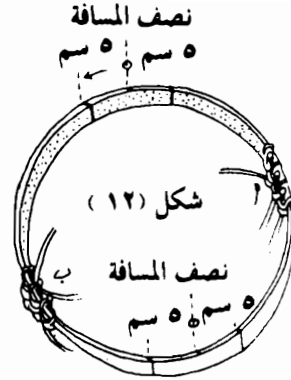 نصف المسافة
٥ سم ٥ سم
شكل (١٢) أ
ب نصف المسافة
٥ سم ٥ سم